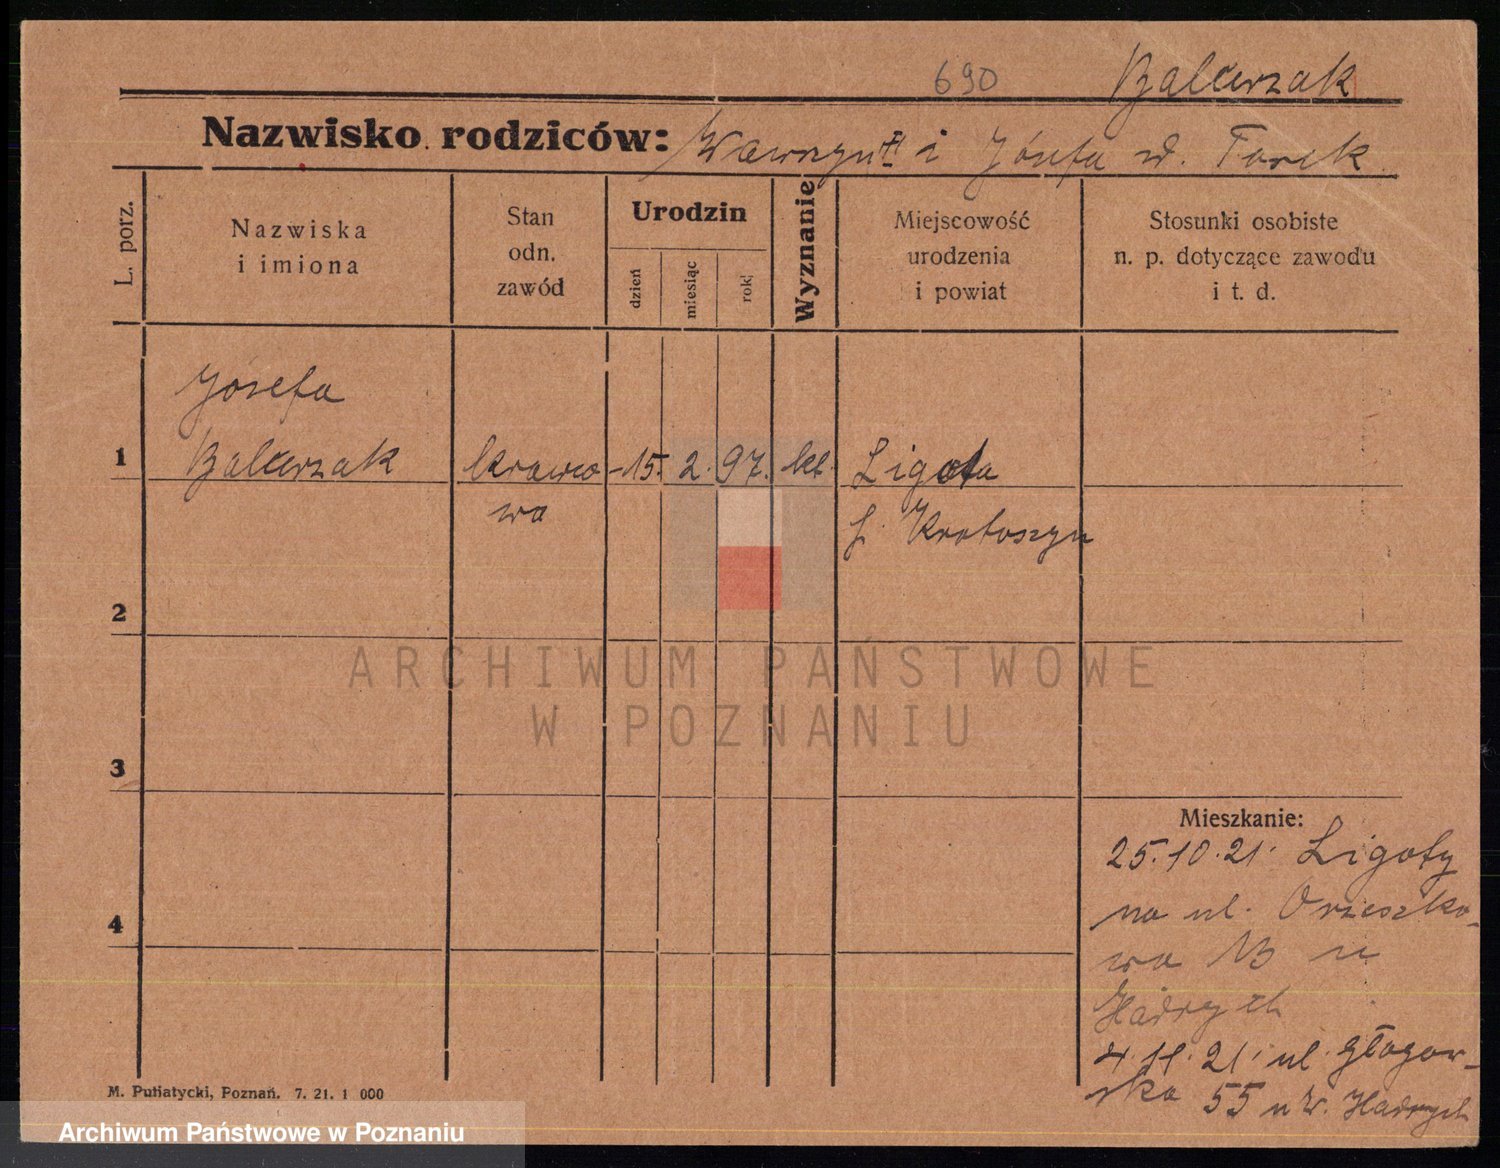 690 Balcerzak
Nazwisko rodziców: Wawrzyn i Józefa d. Torek
L. porz.
Nazwiska i imiona
Stan odn. zawód
Urodzin
dzień
miesiąc
rok
Wyznanie
Miejscowość urodzenia i powiat
Stosunki osobiste n. p. dotyczące zawodu i t. d.
Józefa
1 Balcerzak krawco- 15. 2. 97. kt. Ligota
wa Krotoszyn
2
3
4
Mieszkanie:
25.10.21. Ligoty
na ul. Orzeszko-
wa 13 u
Hadrych
4.11.21. ul. Głogow-
ska 55 u W. Hadrych
M. Putiatycki, Poznań. 7. 21. 1 000
ARCHIWUM PAŃSTWOWE
W POZNANIU
Archiwum Państwowe w Poznaniu